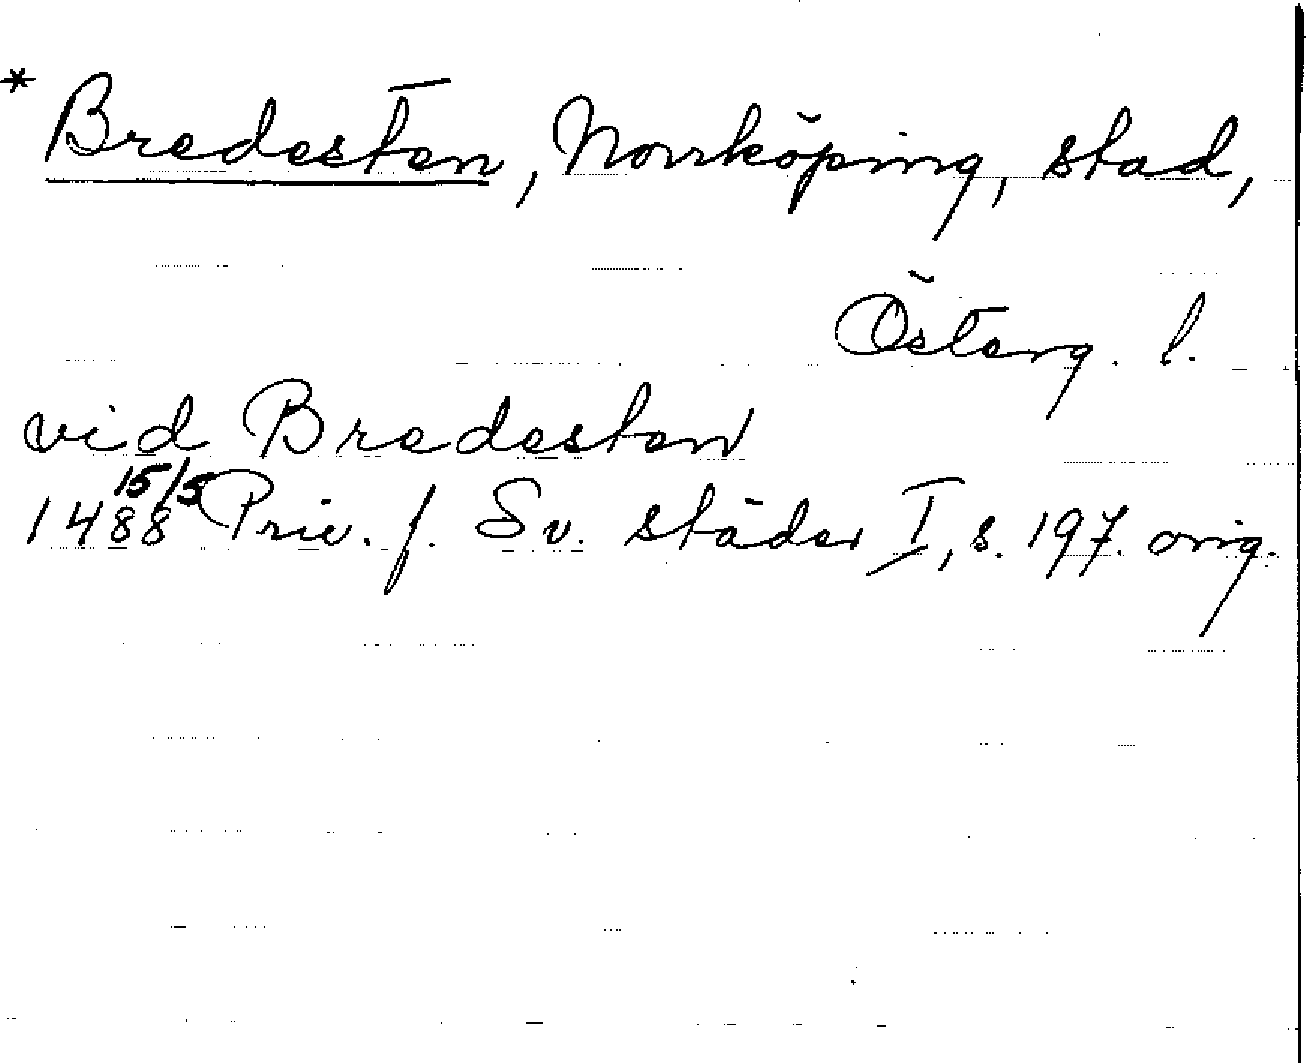 * Bredesten, Norrköping, stad,
Österg. l.
vid Bredesten
1488 15/5 Priv. f. Sv. städer I, s. 197. orig.